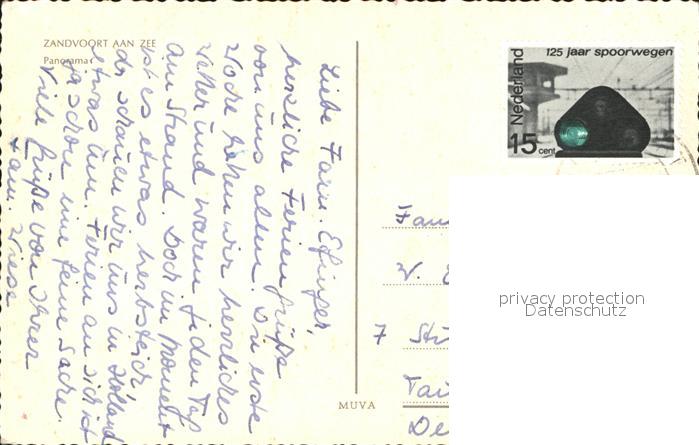 ZANDVOORT AAN ZEE
Panorama
Liebe Fam. Efinger,
herzliche Feriengrüße
von uns allen. Die erste
Woche hatten wir herrliches
Wetter und waren jeden Tag
am Strand. Doch im Moment
ist es etwas herbstlich,
da schauen wir uns in Holland
etwas um. Ferien an sich ist
ja schon eine feine Sache.
Viele Grüße von Ihrer
Fam. Wiese
MUVA
Nederland
125 jaar spoorwegen
15 cent
Fam
W. E
7 Stu
Tai
De
privacy protection
Datenschutz